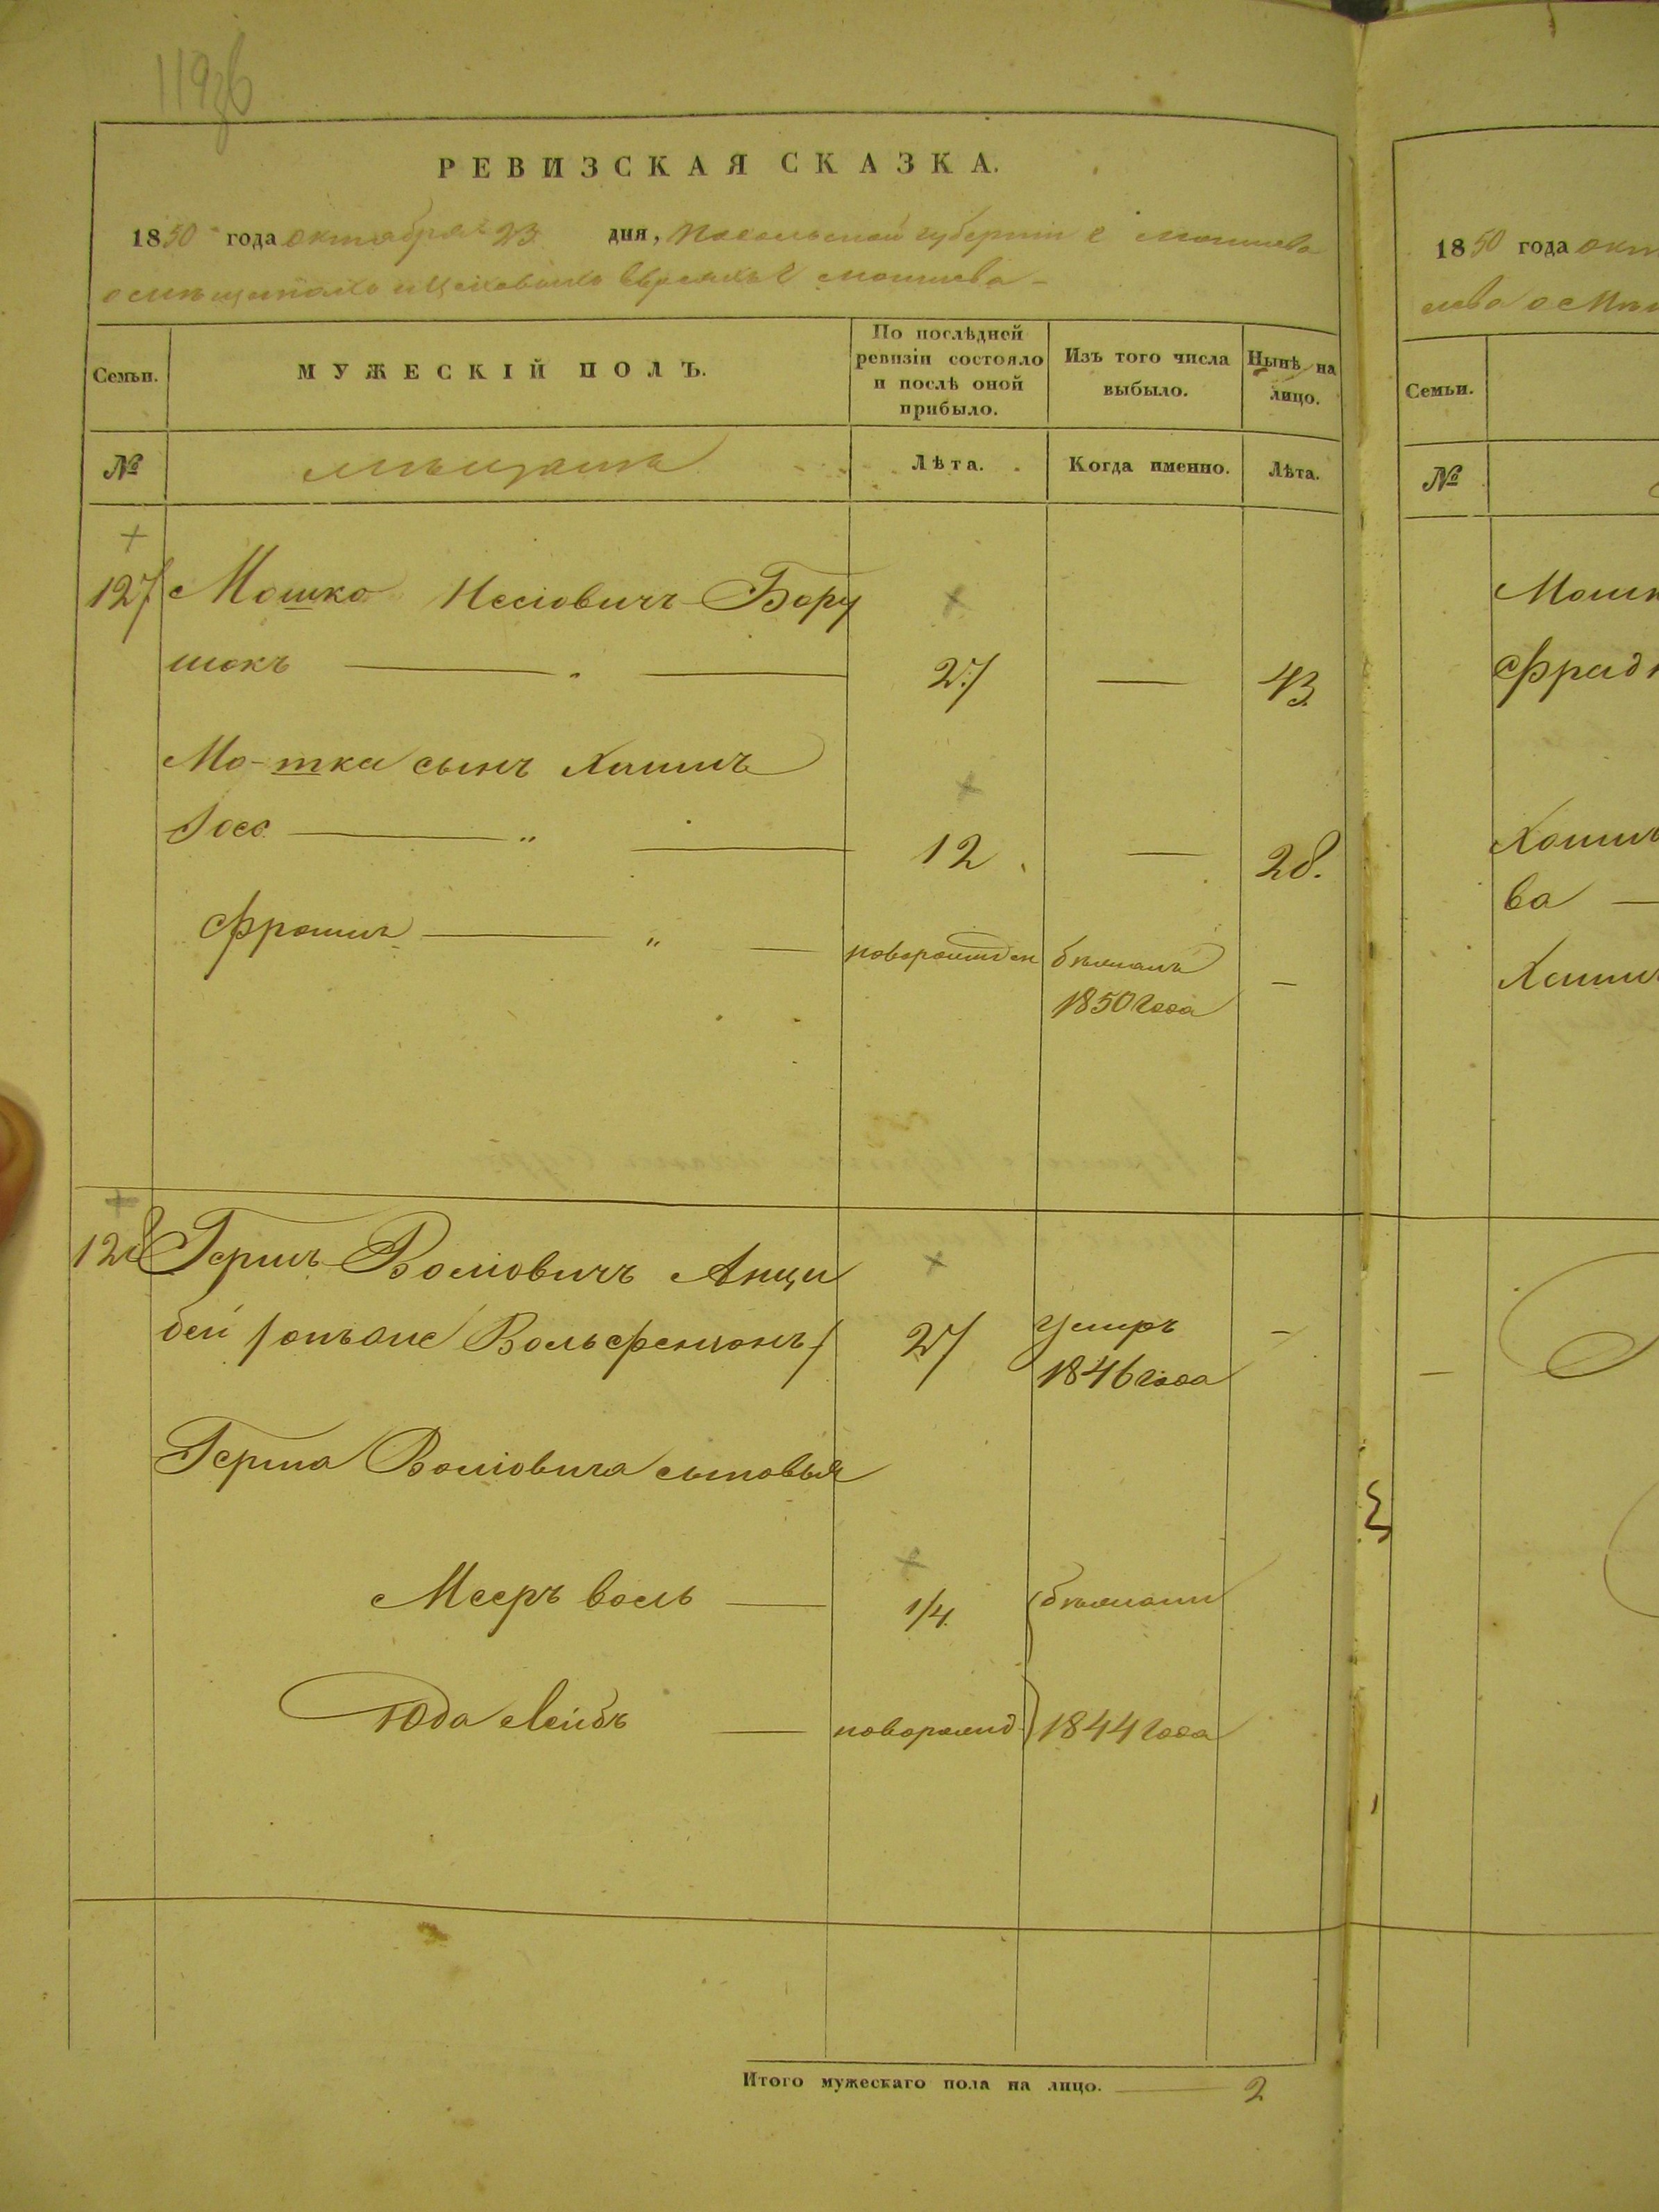 119об
РЕВИЗСКАЯ СКАЗКА.
1850 года октября 23 дня, Подольской губерніи г Могилева
о мѣщанахъ и цеховыхъ Евреяхъ г Могилева
Семьи.
МУЖЕСКІЙ ПОЛЪ.
По послѣдней
ревизіи состояло
и послѣ оной
прибыло.
Изъ того числа
выбыло.
Нынѣ на
лицо.
№
мѣщане
Лѣта.
Когда именно.
Лѣта.
127 Мошко Иосіовичъ Бору
шокъ 27 — 43
Мо-шка сынъ Хаимъ
Іось 12 — 28.
Фроимъ новорожден бѣжалъ —
1850 года
128 Гершъ Волковичъ Анци
бей /онъ же Вольфензонъ/ 27 Умеръ —
1846 года
Герша Волковича сыновья
Мееръ Воль 1/4 бѣжали
Юда Лейбъ новорожд 1844 года
Итого мужескаго пола на лицо. 2
1850 года
Семьи.
№
ва